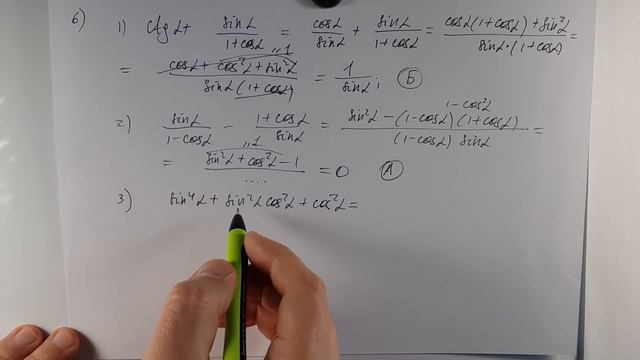 6) 1) ctg α + sin α / (1 + cos α) = cos α / sin α + sin α / (1 + cos α) = (cos α (1 + cos α) + sin² α) / (sin α · (1 + cos α)) =
= (cos α + cos² α + sin² α) / (sin α (1 + cos α)) = 1 / sin α ; Б
2) sin α / (1 − cos α) − (1 + cos α) / sin α = (sin² α − (1 − cos α)(1 + cos α)) / ((1 − cos α) sin α) =
1 − cos² α
= (sin² α + cos² α − 1) / .... = 0 А
3) sin⁴ α + sin² α cos² α + cos² α =